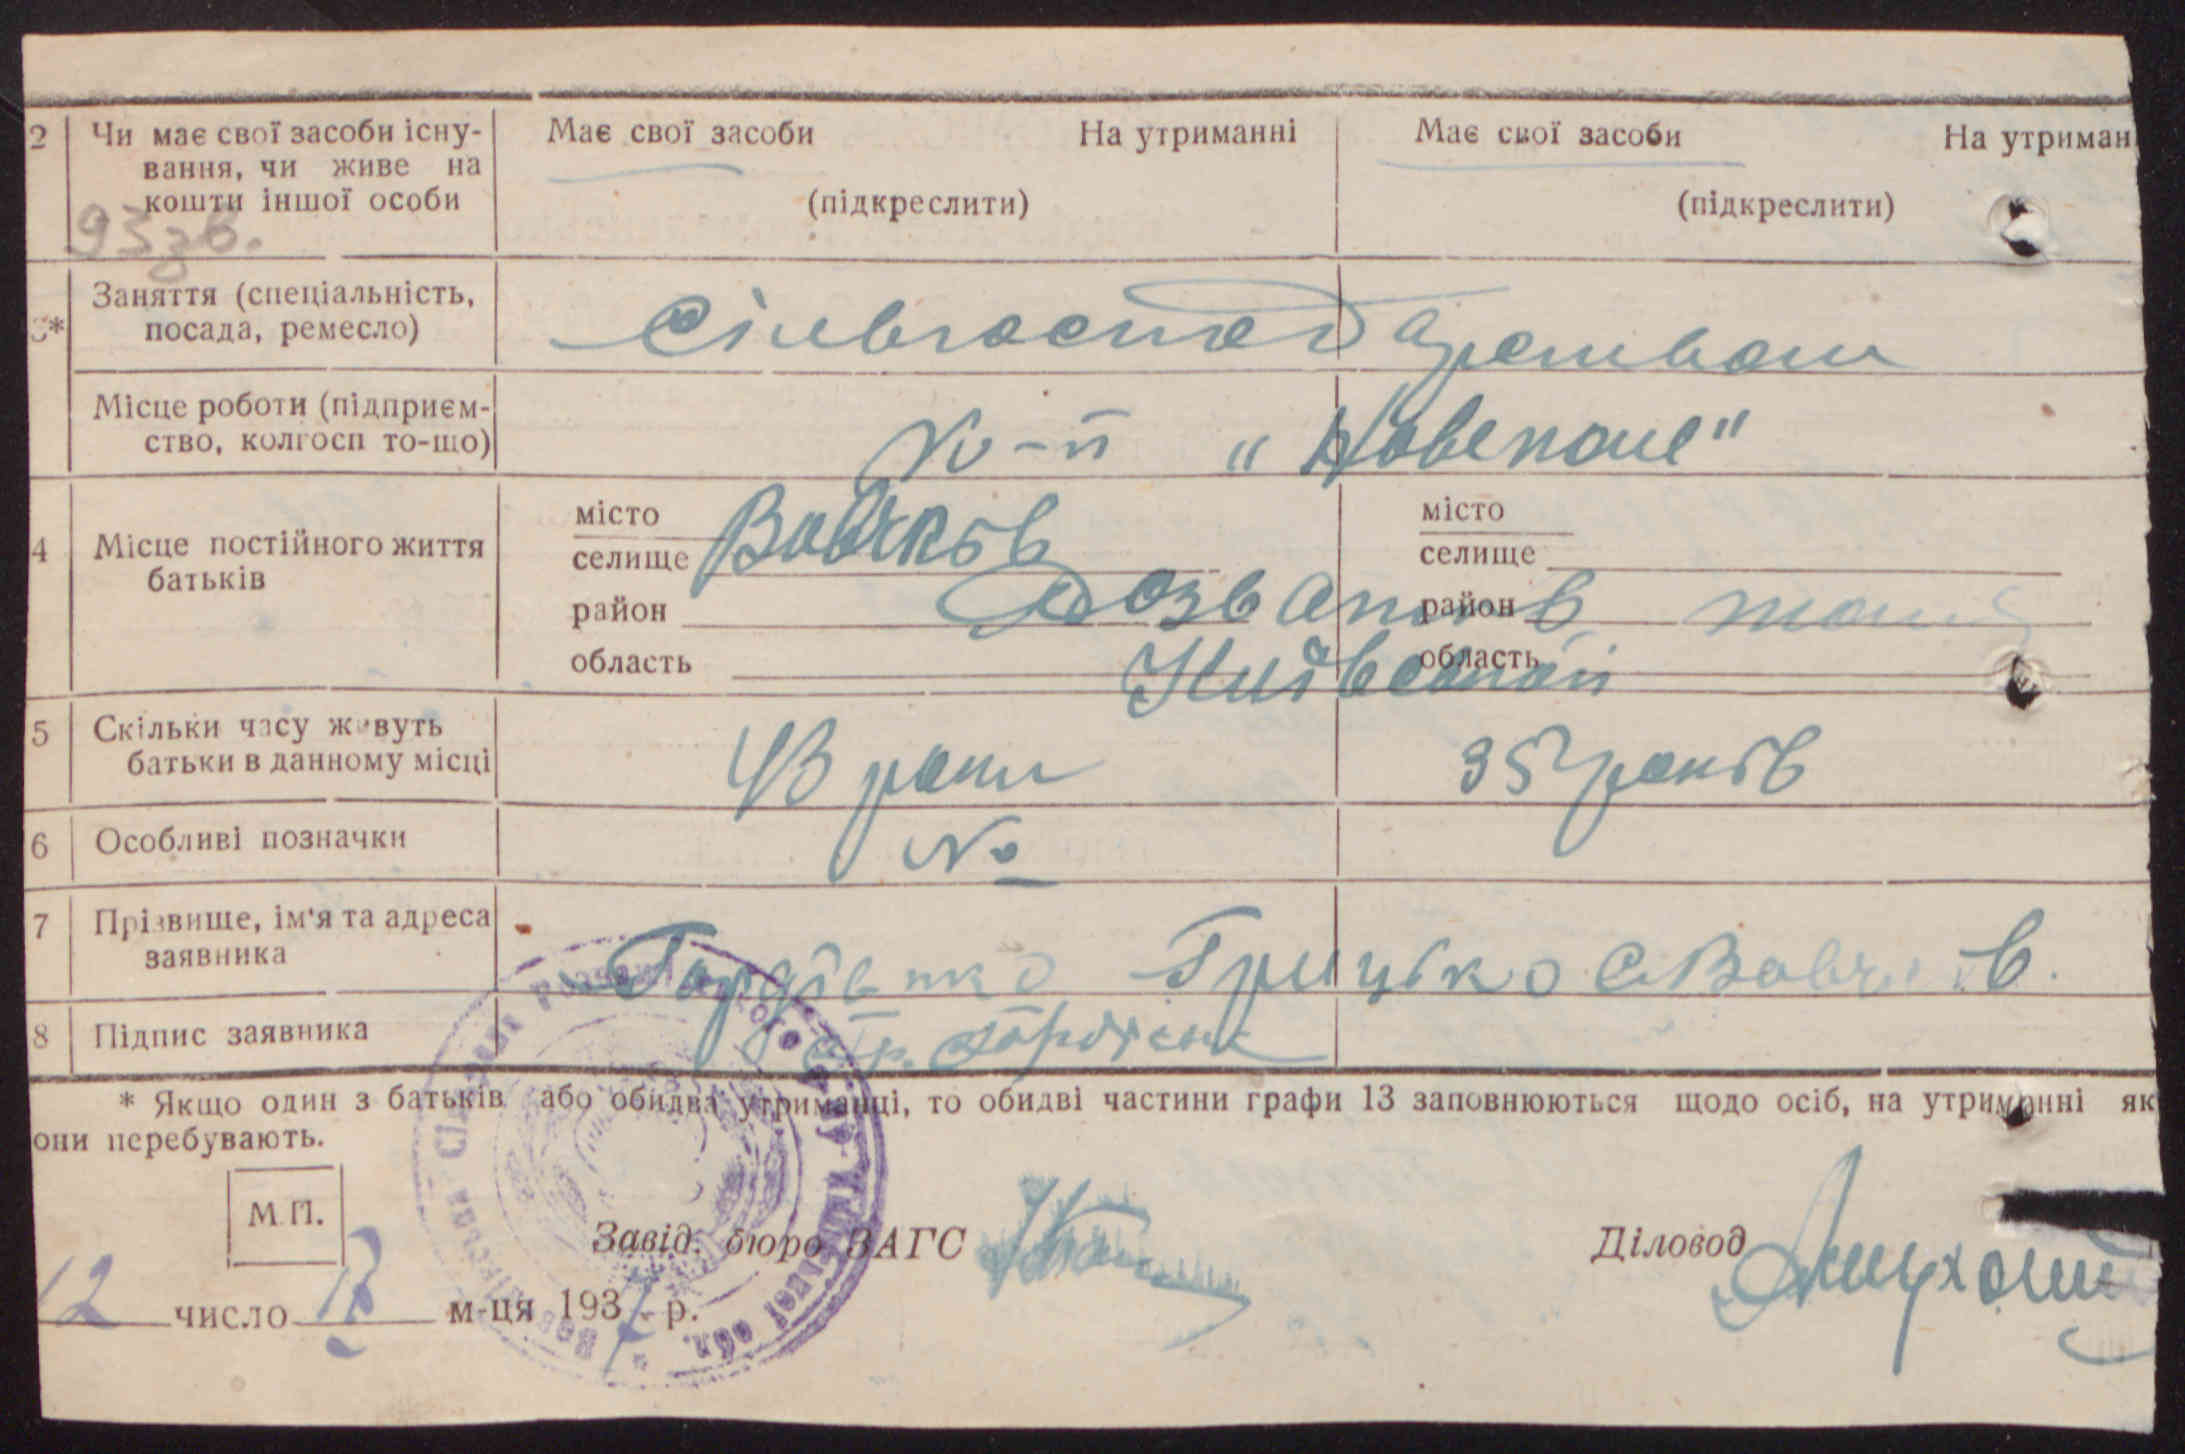 2 Чи має свої засоби існу- Має свої засоби На утриманні Має свої засоби На утриман
вання, чи живе на
кошти іншої особи (підкреслити) (підкреслити)
93зв.
3* Заняття (спеціальність,
посада, ремесло)
Місце роботи (підприєм-
ство, колгосп то-що) "Новеполе"
4 Місце постійного життя
батьків
місто Вовчків місто
селище селище
район район
область Київській область
5 Скільки часу живуть
батьки в данному місці 43 роки 35 років
6 Особливі позначки №
7 Прізвище, ім'я та адреса
заявника Гордієнко Грицько с Вовчків.
8 Підпис заявника Гр. Гордієнк
* Якщо один з батьків або обидва утриманці, то обидві частини графи 13 заповнюються щодо осіб, на утриманні як
они перебувають.
М.П.
Завід. бюро ЗАГС Діловод
12 число м-ця 1937 р.